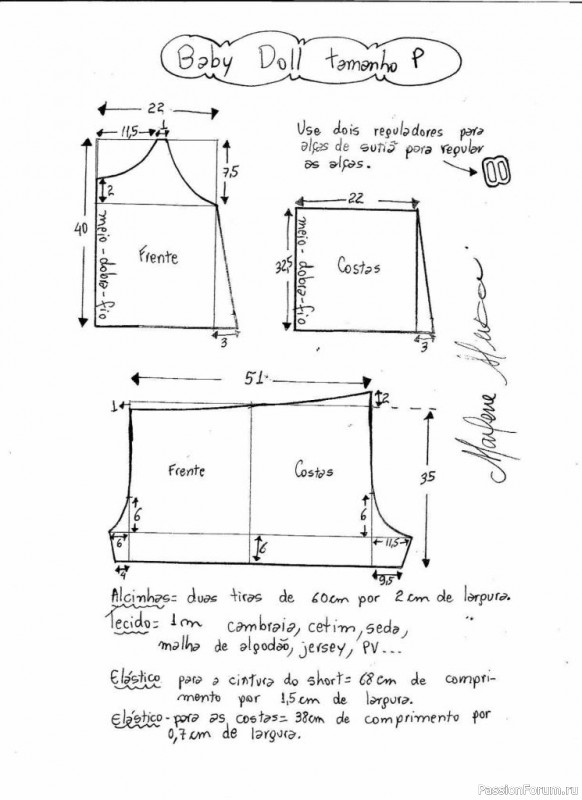 Baby Doll tamanho P
22
11,5
1
Use dois reguladores para
alças de sutiã para regular
as alças.
7,5
2
40
meio-dobra-fio
Frente
3
22
32,5
meio-dobra-fio
Costas
3
Marlene Mukai
51
1
2
Frente
Costas
35
6
6
6
6
11,5
4
9,5
Alcinhas= duas tiras de 60cm por 2cm de largura.
Tecido= 1m cambraia, cetim, seda,
malha de algodão, jersey, PV...
Elástico para a cintura do short= 68cm de compri-
mento por 1,5cm de largura.
Elástico-para as costas= 38cm de comprimento por
0,7cm de largura.
PassionForum.ru